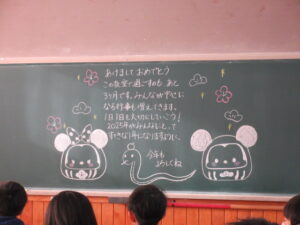 あけまして おめでとう
この教室で過ごすのも、あと
3ヶ月です。みんなが中心に
なる行事も増えてきます。
1日1日を大切にしていこう!
2025年がみんなにとって
すてきな1年になりますように
今年も
よろしくね